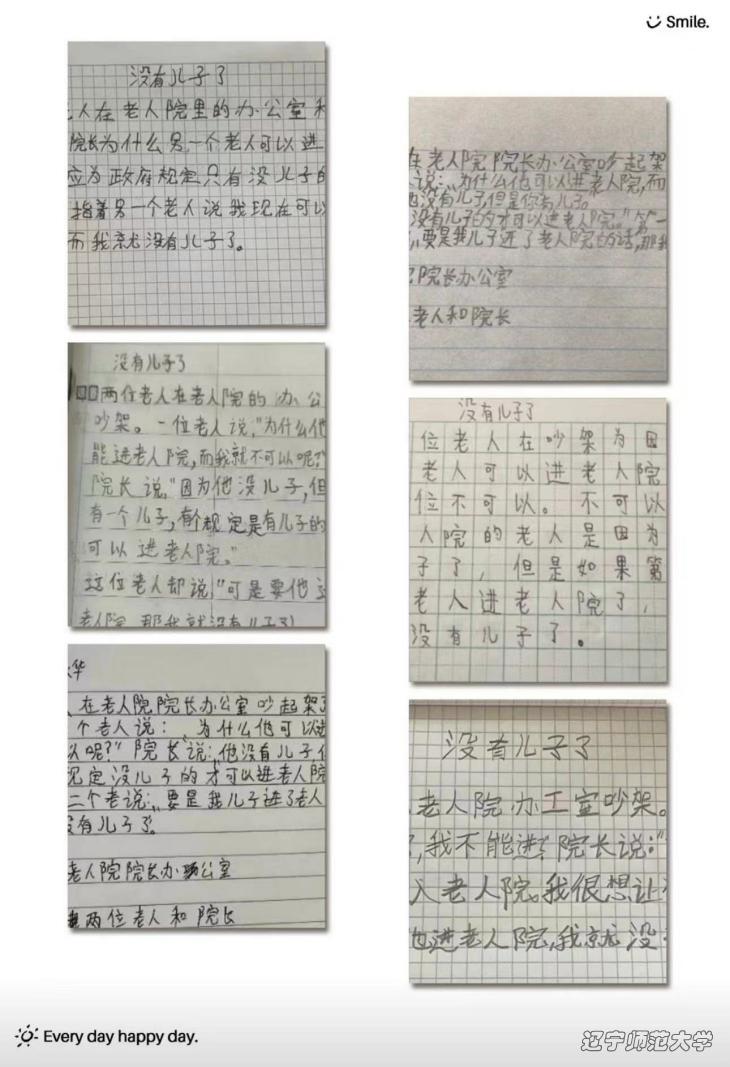 Smile.
没有儿子了
人在老人院里的办公室和
院长为什么另一个老人可以进
应为政府规定只有没儿子的
指着另一个老人说我现在可以
而我就没有儿子了。
在老人院院长办公室吵起架
说:„为什么他可以进老人院,而
他没有儿子,但是你有儿子。
没有儿子的才可以进老人院。”第一
,要是我儿子进了老人院的话,那我
院长办公室
老人和院长
没有儿子了
两位老人在老人院的办公
吵架。一位老人说,“为什么他
能进老人院,而我就不可以呢?”
院长说,“因为他没儿子,但
有一个儿子,有规定是有儿子的
可以进老人院。”
这位老人却说,“可是要他
老人院,那我就没有儿子了
没有儿子了
位老人在吵架为因
老人可以进老人院
位不可以。不可以
人院的老人是因为
子了,但是如果第
老人进老人院了,
没有儿子了。
华
在老人院院长办公室吵起架了
个老人说:„为什么他可以进
以呢?”院长说:„他没有儿子
规定没儿子的才可以进老人院
二个老说:„要是我儿子进了老人
没有儿子了。
老人院院长办公室
两位老人和院长
没有儿子了
老人院办工室吵架。
,我不能进?院长说:“
入老人院。我很想让
他进老人院,我就没
Every day happy day.
辽宁师范大学